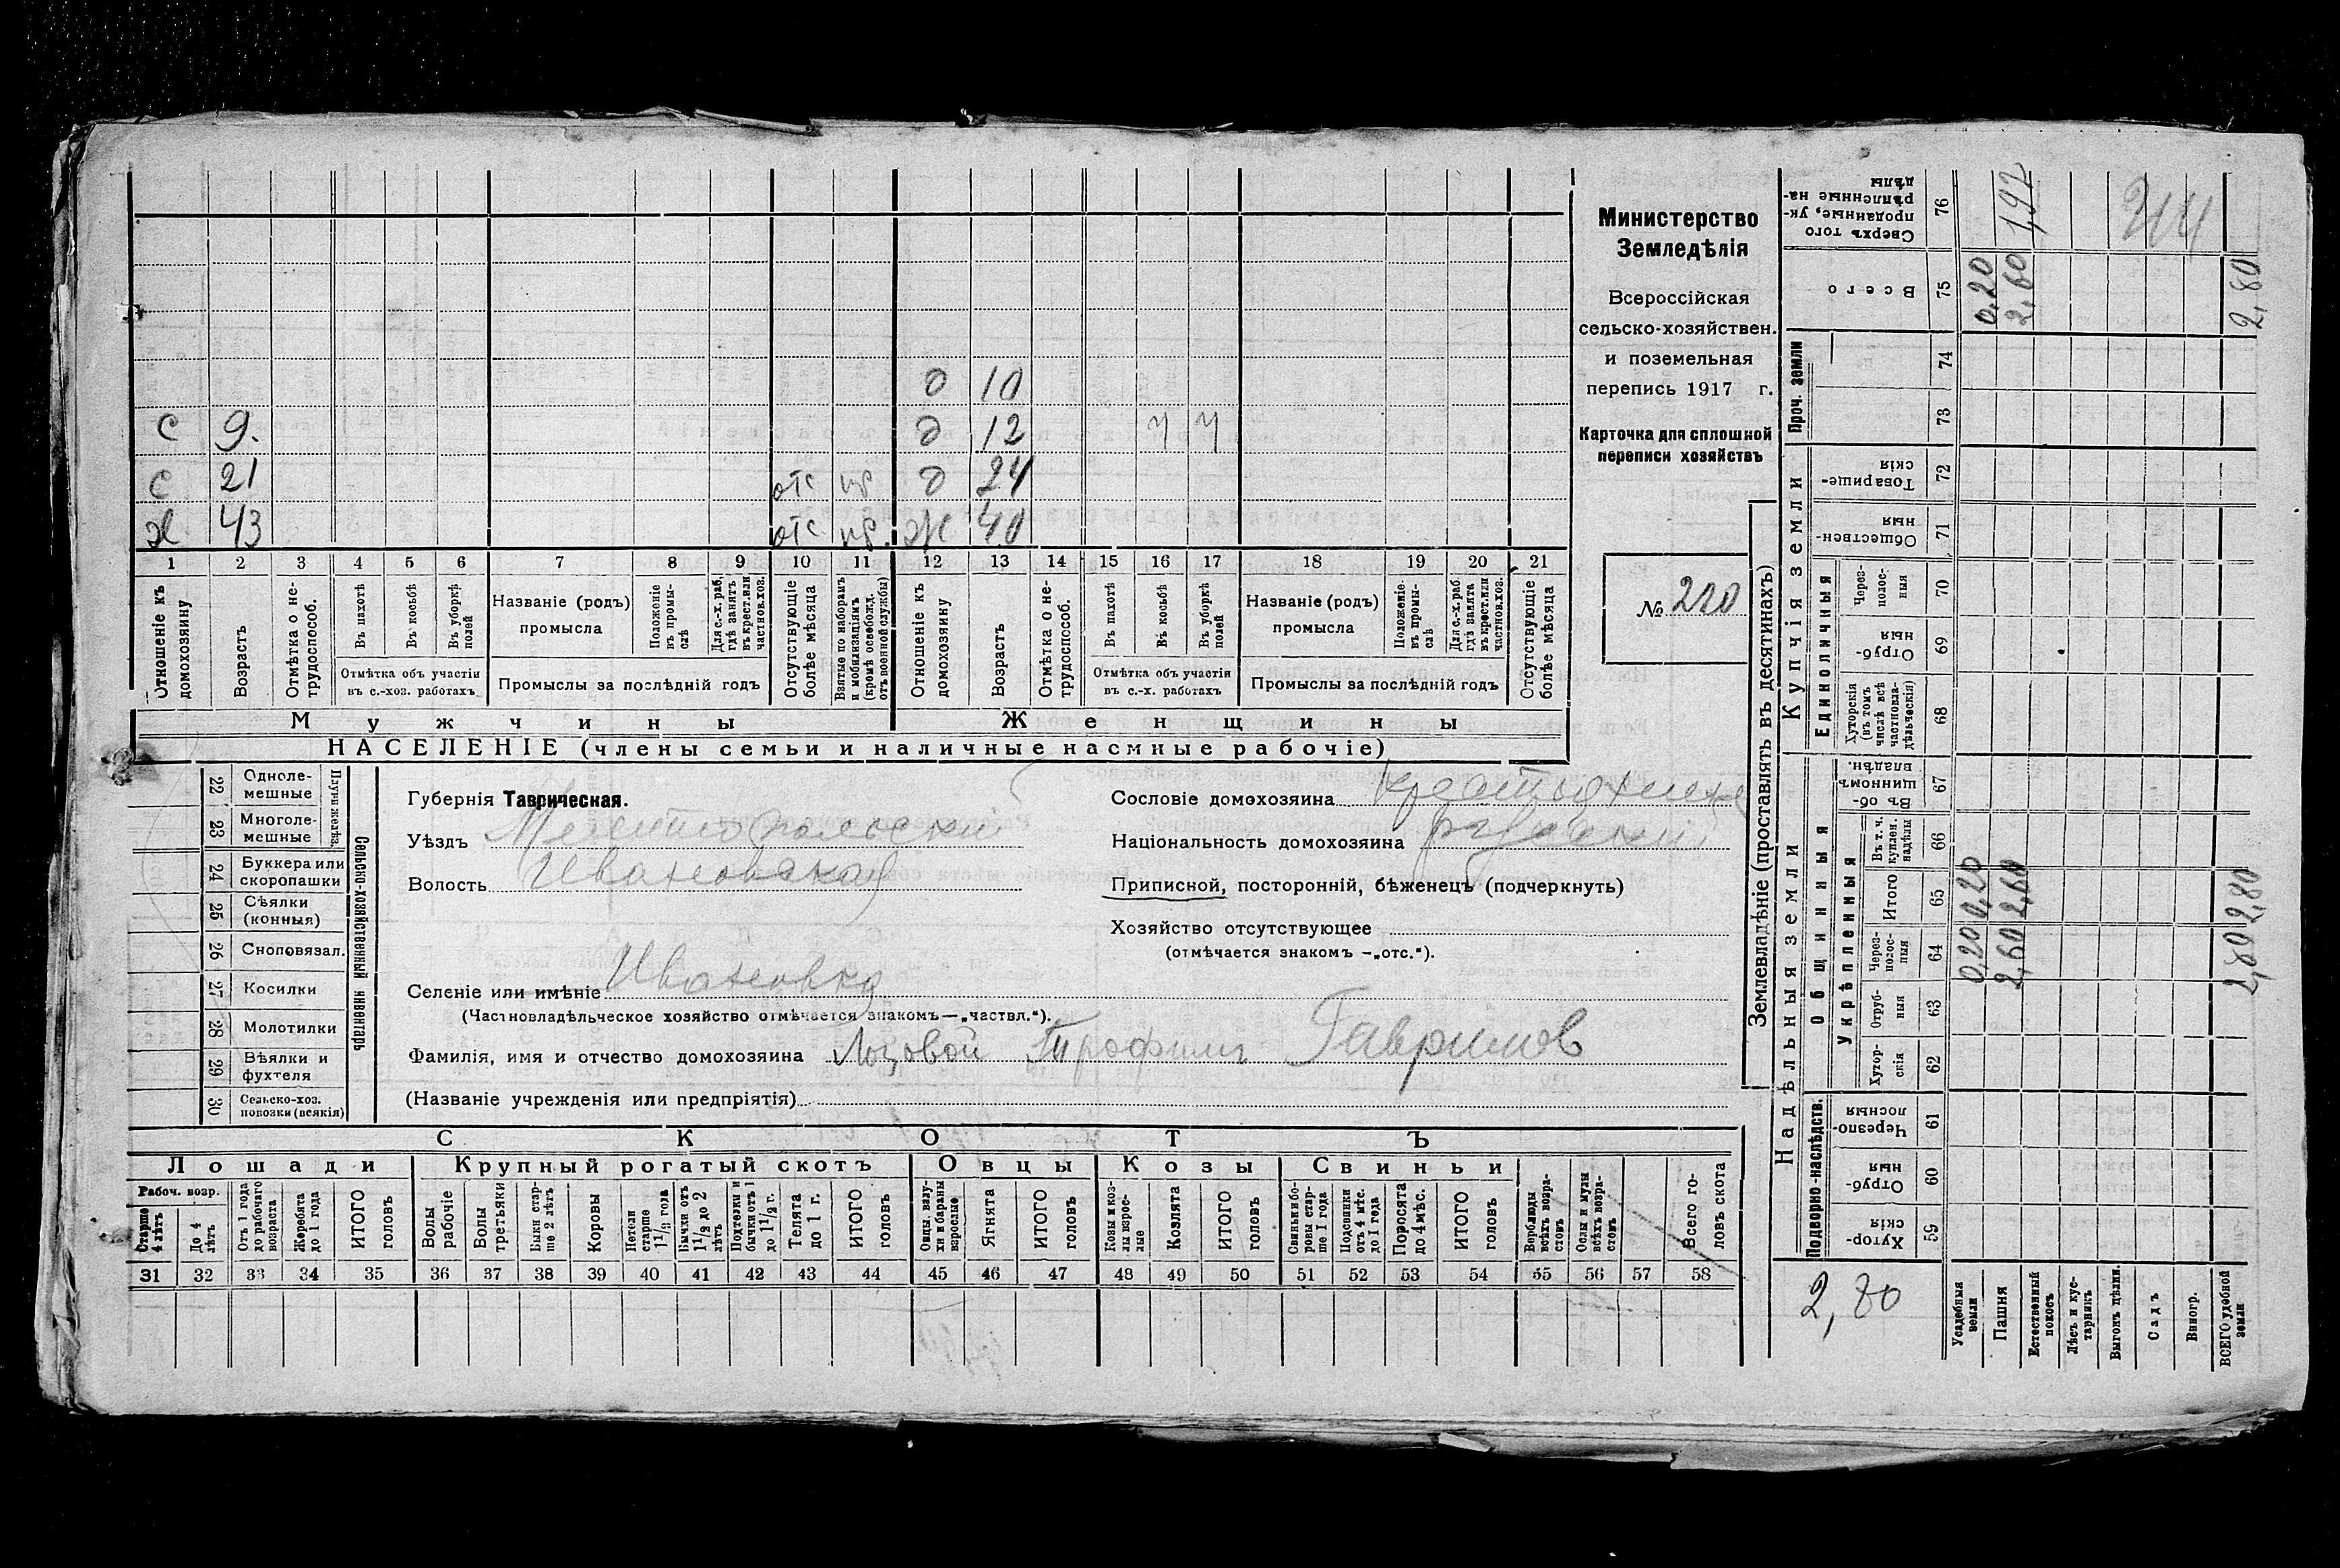 Министерство
Земледѣлія
Всероссійская
сельско-хозяйствен.
и поземельная
перепись 1917 г.
Карточка для сплошной
переписи хозяйствъ
№ 210
д 10
с 9. д 12 ч ч
с 21 отс пр д 24
х 43 отс пр. ж 40
1 2 3 4 5 6 7 8 9 10 11 12 13 14 15 16 17 18 19 20 21
Отношеніе къ домохозяину
Возрастъ
Отмѣтка о не-трудоспособ.
Въ пахотѣ
Въ косьбѣ
Въ уборкѣ полей
Отмѣтка объ участіи въ с.-хоз. работахъ
Названіе (родъ) промысла
Положеніе въ промы-слѣ
Для с.-х. раб, гдѣ занятъ въ крест. или частнов. хоз.
Промыслы за послѣдній годъ
Отсутствующіе болѣе мѣсяца
Взятые по наборамъ и мобилизаціямъ (кромѣ освобожд. отъ военной службы)
Отношеніе къ домохозяину
Возрастъ
Отмѣтка о не-трудоспособ.
Въ пахотѣ
Въ косьбѣ
Въ уборкѣ полей
Отмѣтка объ участіи въ с.-х. работахъ
Названіе (родъ) промысла
Положеніе въ промы-слѣ
Для с.-х. раб. гдѣ занята въ крест. или частнов. хоз.
Промыслы за послѣдній годъ
Отсутствующіе болѣе мѣсяца
Мужчины Женщины
НАСЕЛЕНІЕ (члены семьи и наличные наемные рабочіе)
22 Одноле-мешные
23 Многоле-мешные
Плуги желѣз.
24 Буккера или скоропашки
25 Сѣялки (конныя)
26 Сноповязал.
27 Косилки
28 Молотилки
29 Вѣялки и фухтеля
30 Сельско-хоз. повозки (всякія)
Сельско-хозяйственный инвентарь
Губернія Таврическая.
Уѣздъ Мелитопольскій
Волость Ивановская
Сословіе домохозяина
Національность домохозяина русскій
Приписной, посторонній, бѣженецъ (подчеркнуть)
Хозяйство отсутствующее
(отмѣчается знакомъ —„отс.“).
Селеніе или имѣніе Ивановка
(Частновладѣльческое хозяйство отмѣчается знакомъ—„частвл.“).
Фамилія, имя и отчество домохозяина Лозовой Трофимъ Гаврилов
(Названіе учрежденія или предпріятія)
СКОТЪ
Лошади Крупный рогатый скотъ Овцы Козы Свиньи
Рабоч. возр.
Старше 4 лѣтъ
До 4 лѣтъ
Отъ 1 года до рабочаго возраста
Жеребята до 1 года
ИТОГО головъ
Волы рабочіе
Волы третьяки
Быки стар-ше 2 лѣтъ
Коровы
Нетели старше 1 1/2 года
Бычки отъ 1 1/2 до 2 лѣтъ
Подтелки и бычки отъ 1 до 1 1/2 г.
Телята до 1 г.
ИТОГО головъ
Овцы, валу-хи и бараны взрослые
Ягнята
ИТОГО головъ
Козы и коз-лы взрос-лые
Козлята
ИТОГО головъ
Свиньи и бо-ровы стар-ше 1 года
Подсвинки отъ 4 мѣс. до 1 года
Поросята до 4 мѣс.
ИТОГО головъ
Верблюды всѣхъ возра-стовъ
Ослы и мулы всѣхъ возра-стовъ
Всего го-ловъ скота
31 32 33 34 35 36 37 38 39 40 41 42 43 44 45 46 47 48 49 50 51 52 53 54 55 56 57 58
Землевладѣніе (проставлять въ десятинахъ)
Надѣльныя земли
Купчія земли
Проч. земли
Подворно-наслѣдств.
Общинныя
Укрѣпленныя
Единоличныя
59 Хутор-скія
60 Отруб-ныя
61 Черезпо-лосныя
62 Хутор-скія
63 Отруб-ныя
64 Через-полос-ныя
65 Итого
66 Въ т. ч. куплен. надѣлы
67 Въ об-щинномъ владѣн.
68 Хуторскія (въ томъ числѣ всѣ частновла-дѣльческія)
69 Отруб-ныя
70 Через-полос-ныя
71 Обществен-ныя
72 Товарище-скія
73
74
75 Всего
76 Сверхъ того проданные, ук-рѣпленные на-дѣлы
Усадебныя земли 0,20 0,20 0,20
Пашня 2,60 2,60 2,60 1,97
Естественный покосъ
Лѣсъ и кус-тарникъ
Выгонъ цѣлин.
Садъ
Виногр.
ВСЕГО удобной земли 2,80 2,80 2,80
2,80